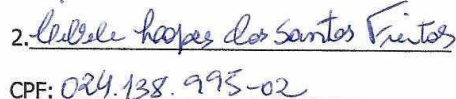 2. dos Santos Freitas
CPF: 024.138.995-02